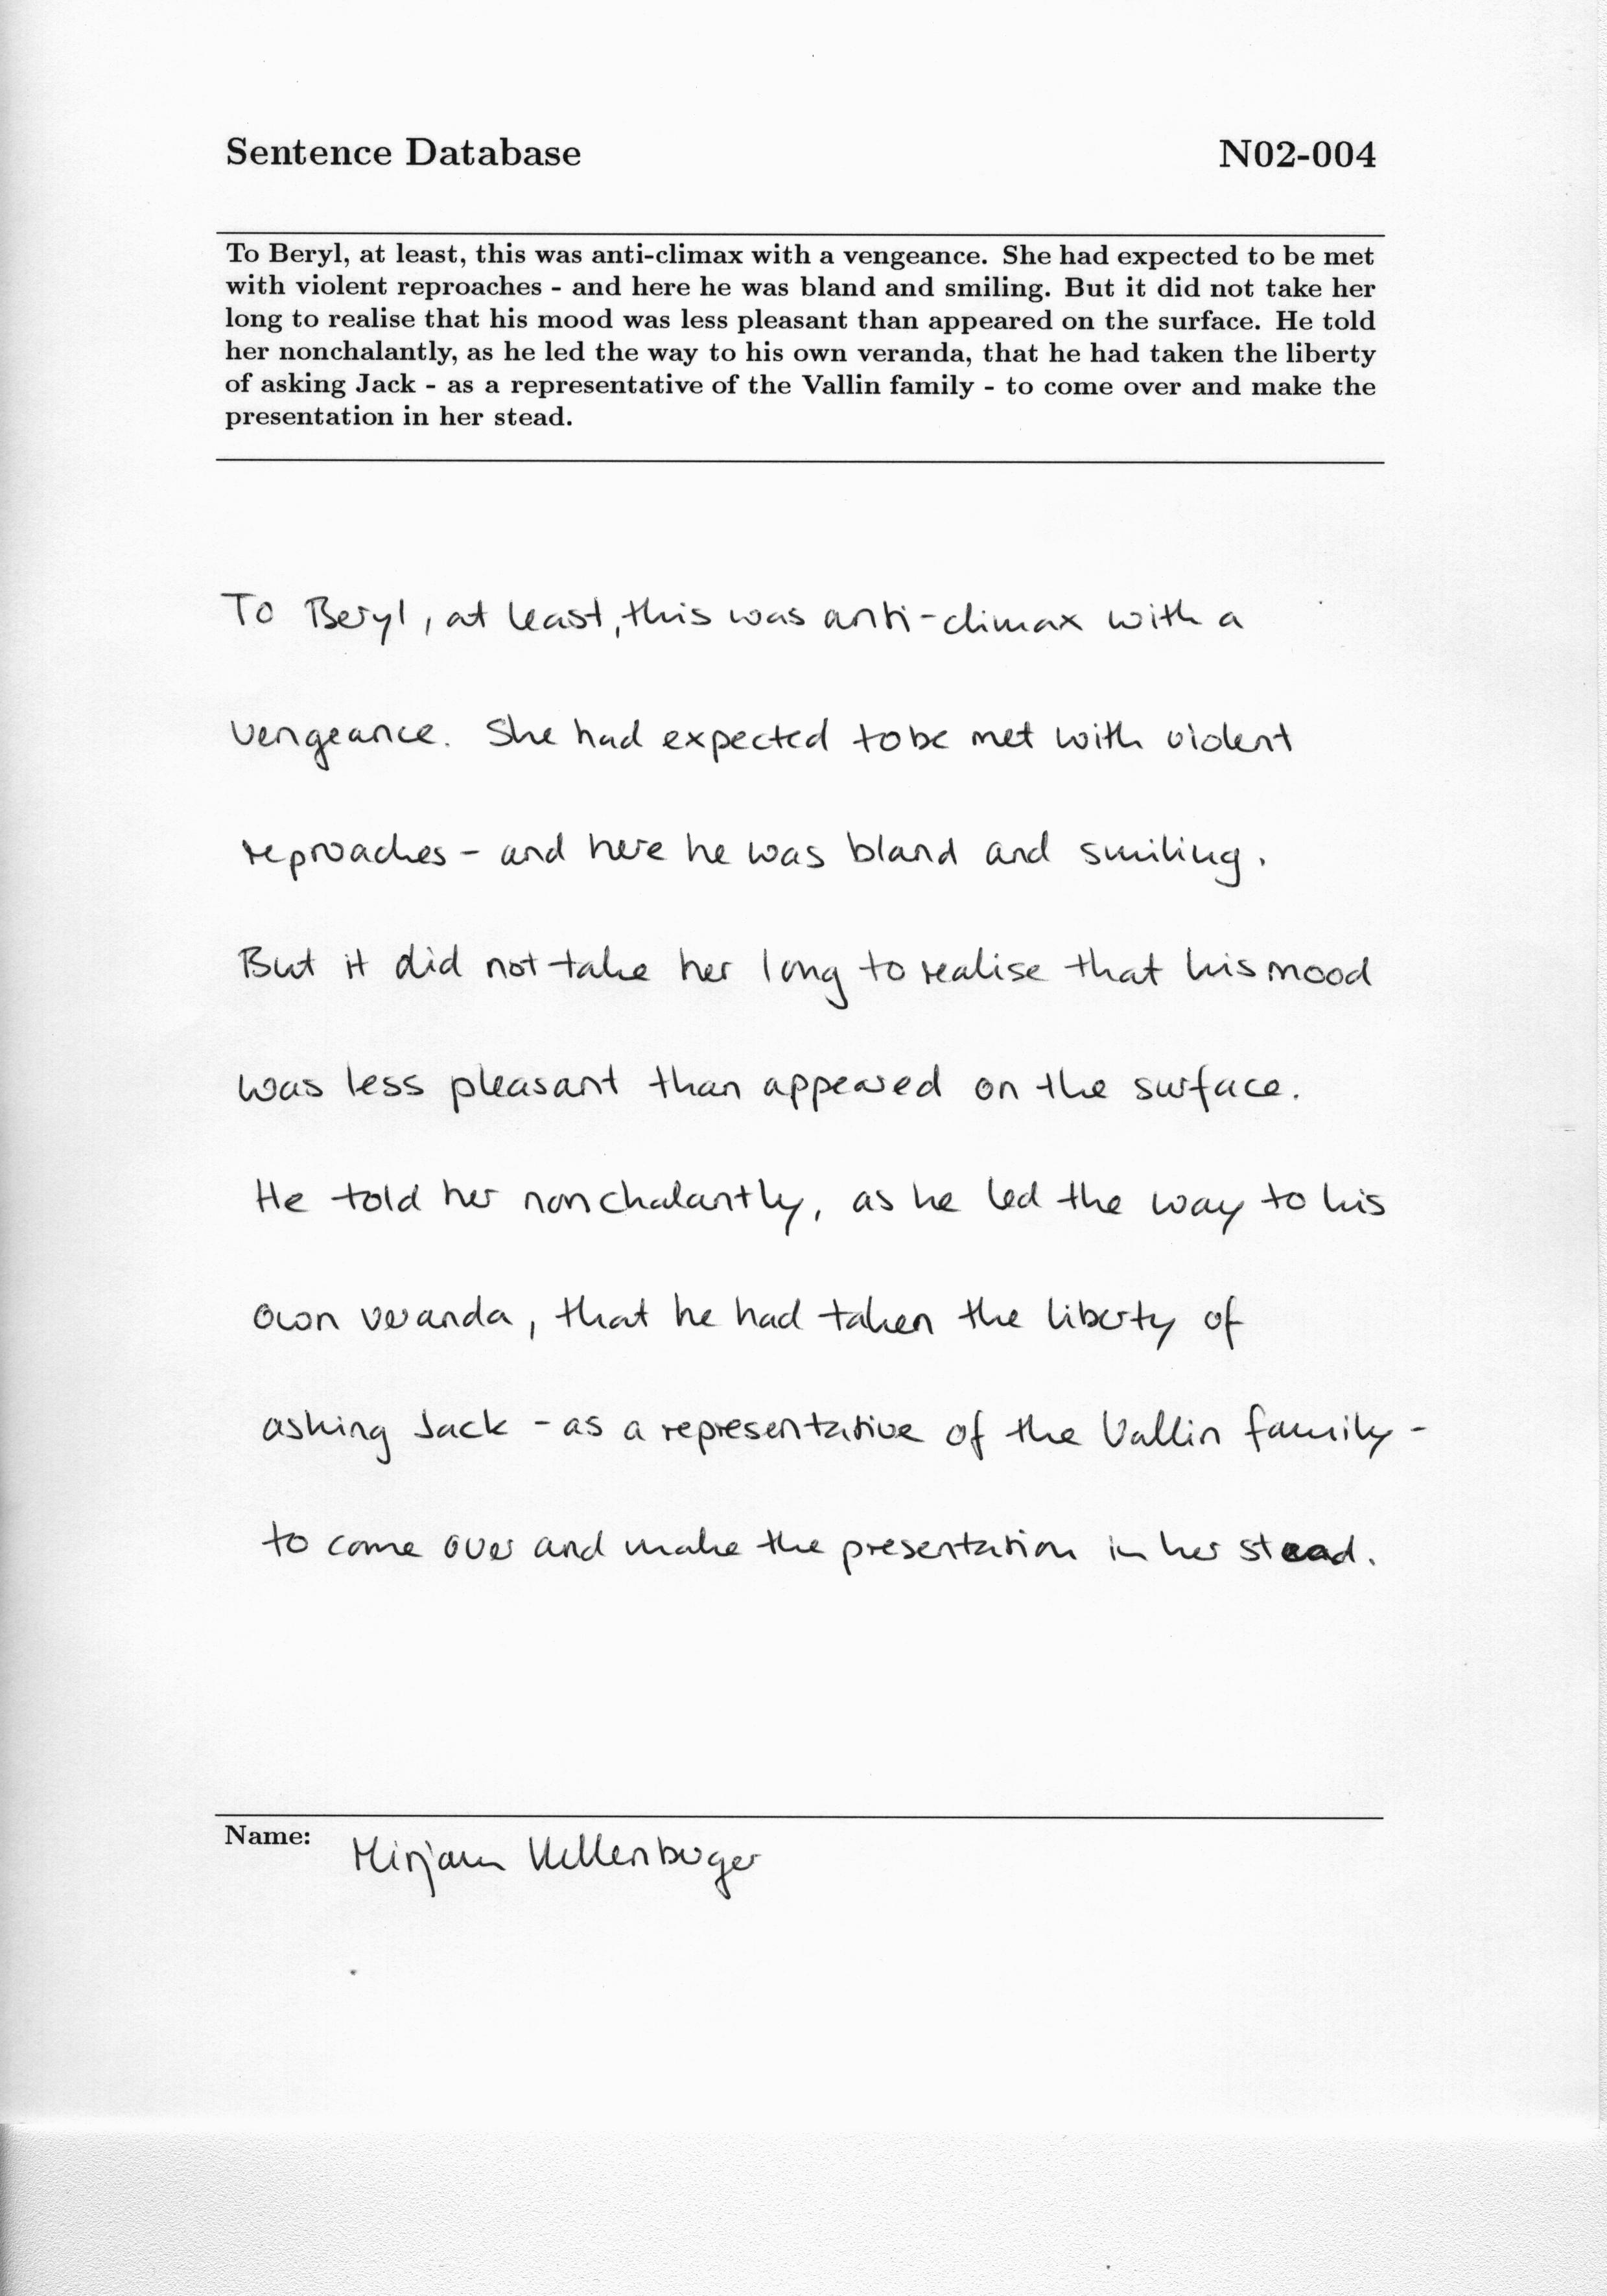 Sentence Database N02-004
To Beryl, at least, this was anti-climax with a vengeance. She had expected to be met
with violent reproaches - and here he was bland and smiling. But it did not take her
long to realise that his mood was less pleasant than appeared on the surface. He told
her nonchalantly, as he led the way to his own veranda, that he had taken the liberty
of asking Jack - as a representative of the Vallin family - to come over and make the
presentation in her stead.
To Beryl, at least, this was anti-climax with a
vengeance. She had expected to be met with violent
reproaches - and here he was bland and smiling.
But it did not take her long to realise that his mood
was less pleasant than appeared on the surface.
He told her nonchalantly, as he led the way to his
own veranda, that he had taken the liberty of
asking Jack - as a representative of the Vallin family -
to come over and make the presentation in her stead.
Name: Mirjam Kellenberger